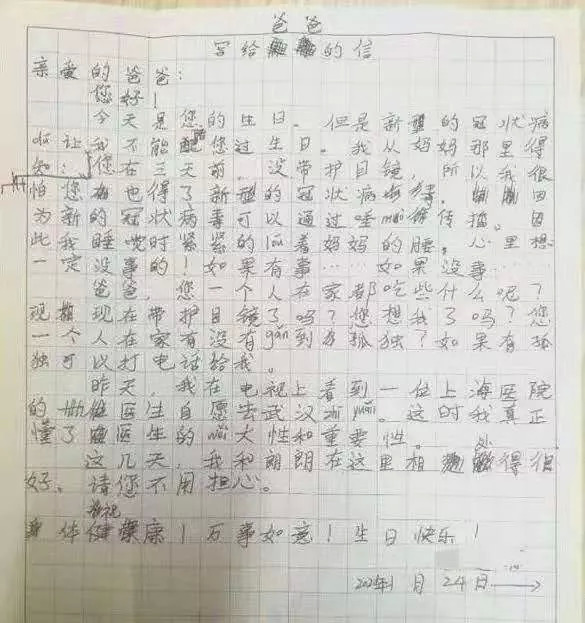 爸爸
写给的信
亲爱的爸爸:
您好!
今天是您的生日。但是新型的冠状病
让我不能陪您过生日。我从妈妈那里得
知:您在三天前,没带护目镜,所以我很
怕您也得了新型的冠状病毒。因
为新的冠状病毒可以通过唾传播。因
此我睡觉时紧紧的lōu着妈妈的腰。心里想
一定没事的!如果有事……如果没事……
爸爸,您一个人在家都吃些什么呢?
现在带护目镜了吗?您想我了吗?您
一个人在家有没有gǎn到孤独?如果有孤
独可以打电话给我。
昨天,我在电视上看到一位上海医院
的医生自愿去武汉。这时我真正
懂了医生的wěi大性和重要性。
这几天,我和朗朗在这里相处得很
好。请您不用担心。
祝
身体健康!万事如意!生日快乐!
月24日